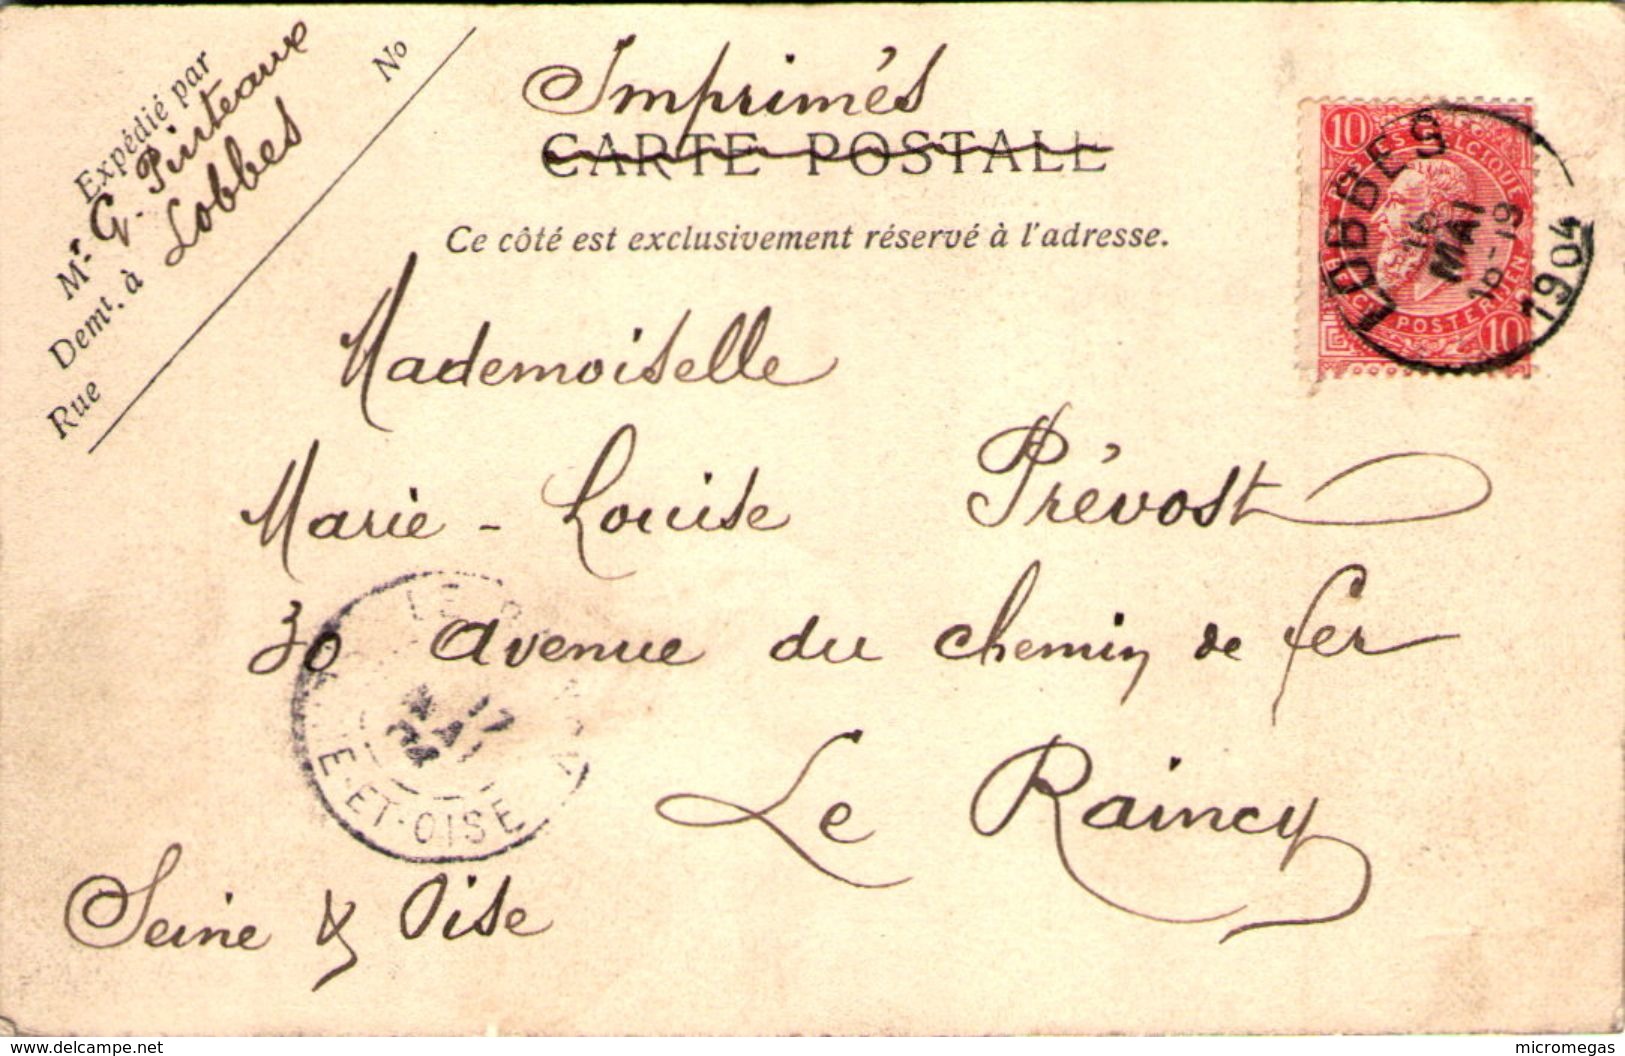 Expédié par
Mr. G. Pinteaux
Demt. à Lobbes
Rue
No
Imprimés
CARTE POSTALE
Ce côté est exclusivement réservé à l'adresse.
10 10
POSTERIJEN 10
LOBBES
16
MAI
18-19
1904
Mademoiselle
Marie-Louise Prévost
30 avenue du chemin de fer
Le Raincy
Seine & Oise
17
MAI
04
ET-OISE
www.delcampe.net
micromegas